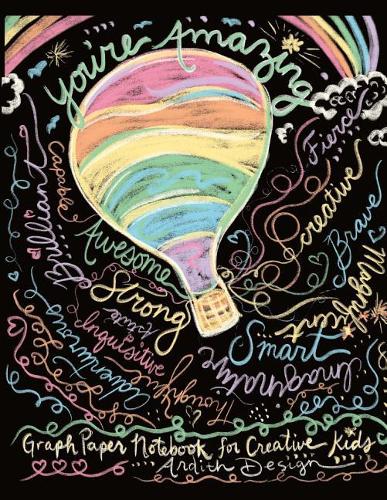 You're Amazing
Fierce
Capable
Brilliant
creative
Brave
Awesome
Magnificent
Strong
Kind
Inquisitive
Smart
Adventurous
Thoughtful
Imaginative
Graph Paper Notebook for Creative Kids
Ardith Design